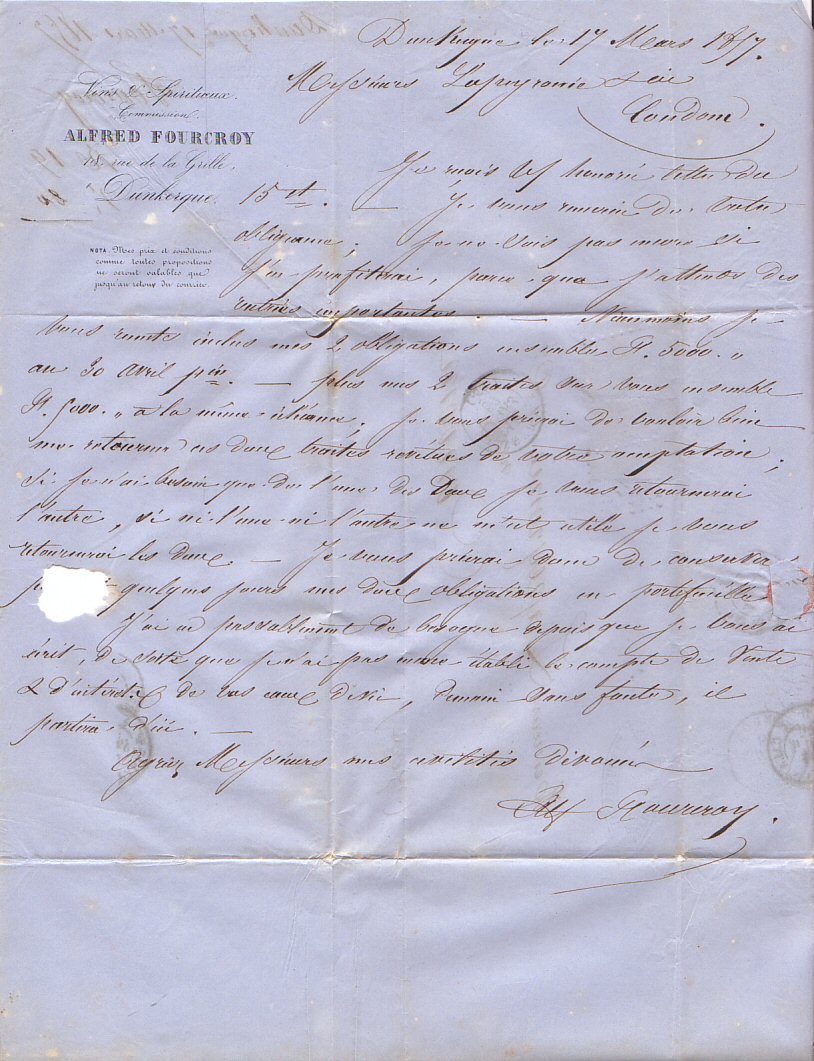 Dunkerque le 17 Mars 1857.
Messieurs Lapeyronie & cie
Condom.
Vins & Spiritueux.
Commission
ALFRED FOURCROY
18, rue de la Grille.
Dunkerque.
NOTA. Mes prix et conditions
comme toutes propositions
ne seront valables que
jusqu'au retour du courrier.
Je reçois v/ honorée lettre du
15 ct. — Je vous remercie de votre
obligeance, je ne sais pas encore si
j'en profiterai, parce que j'attends des
rentrées importantes. — Néanmoins je
vous remets inclus mes 2 obligations ensemble Fr. 5000. "
au 30 avril pin. — plus mes 2 traites sur vous ensemble
Fr. 5000. " à la même échéance, je vous prierai de vouloir bien
me retourner ces deux traites revêtues de votre acceptation,
si je n'ai besoin que de l'une des Deux je vous retournerai
l'autre, si ni l'une ni l'autre ne m'est utile je vous
retournerai les deux — Je vous prierai donc de conserver
quelques jours mes deux obligations en portefeuille
J'ai eu passablement de besogne depuis que je vous ai
écrit, de sorte que je n'ai pas encore établi le compte de Vente
& d'intérêts de vos eaux de vie, demain sans faute, il
partira d'ici. —
Agréez Messieurs mes civilités dévouées
Alf Fourcroy.